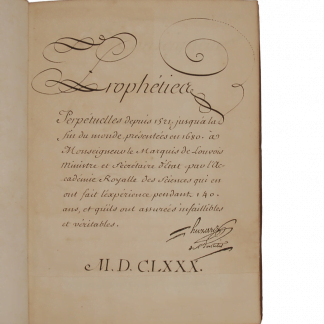 Prophéties
Perpetuelles depuis 1521 jusqu'à la
fin du monde, présentées en 1680. à
Monseigneur le Marquis de Louvois
Ministre et Sécrétaire d'état par l'Ac-
cademie Royalle des Sciences qui en
ont fait l'éxpérience pendant 140.
ans, et qu'ils ont assurées infaillibles
et véritables.
M.D.C.LXXX.